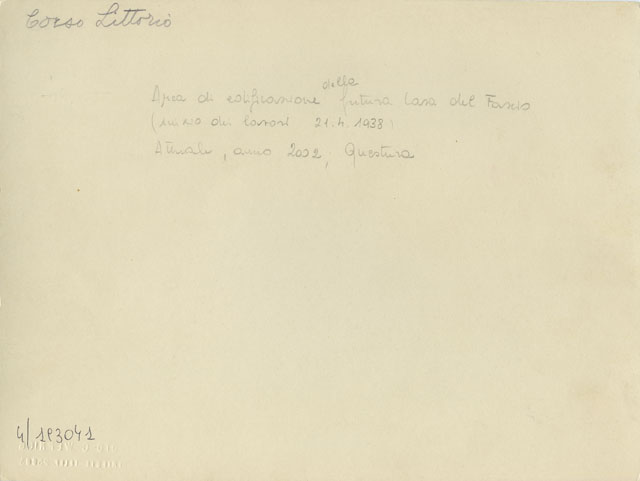 Corso Littorio
Area di edificazione della futura Casa del Fascio
(inizio dei lavori 21.4.1938)
Attuale, anno 2002, Questura
4/193041